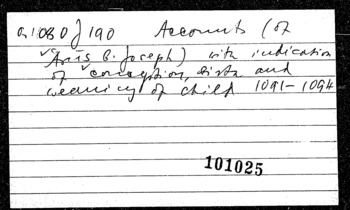 Or 1080 J 190 Accounts (of
Aris B. Joseph) with indication
of conception, birth and
weaning of child 1091-1094
101025